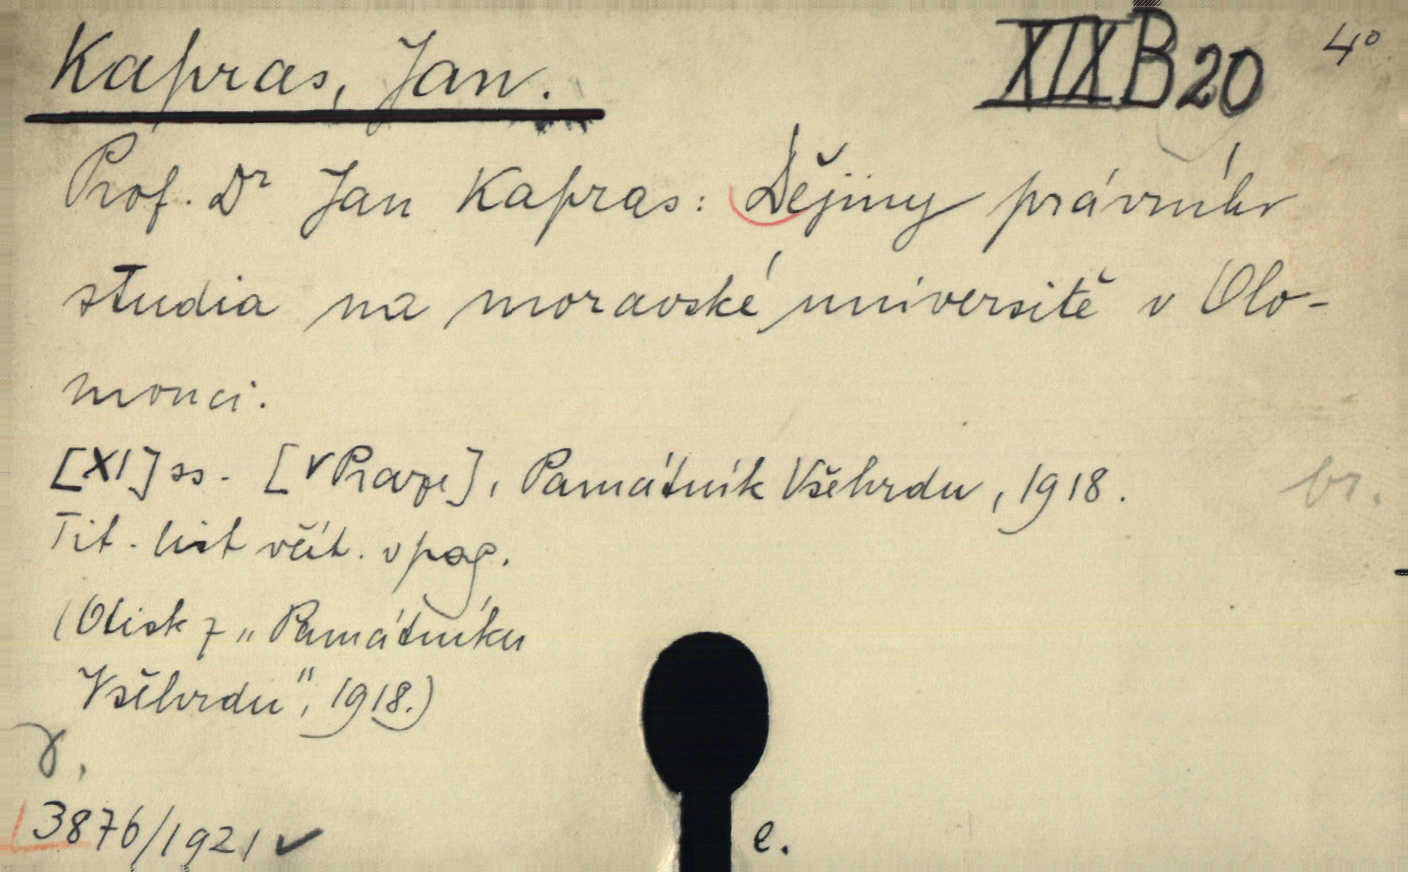 Kapras, Jan.
XIX B 20 4°
Prof. Dr Jan Kapras: Dějiny právního
studia na moravské universitě v Olo-
mouci.
[XI] ss. [v Praze], Památník Všehrdu, 1918.
br.
Tit. list včít. v pag.
(Otisk z „Památníku
Všehrdu", 1918.)
3876/1921 ✓
e.